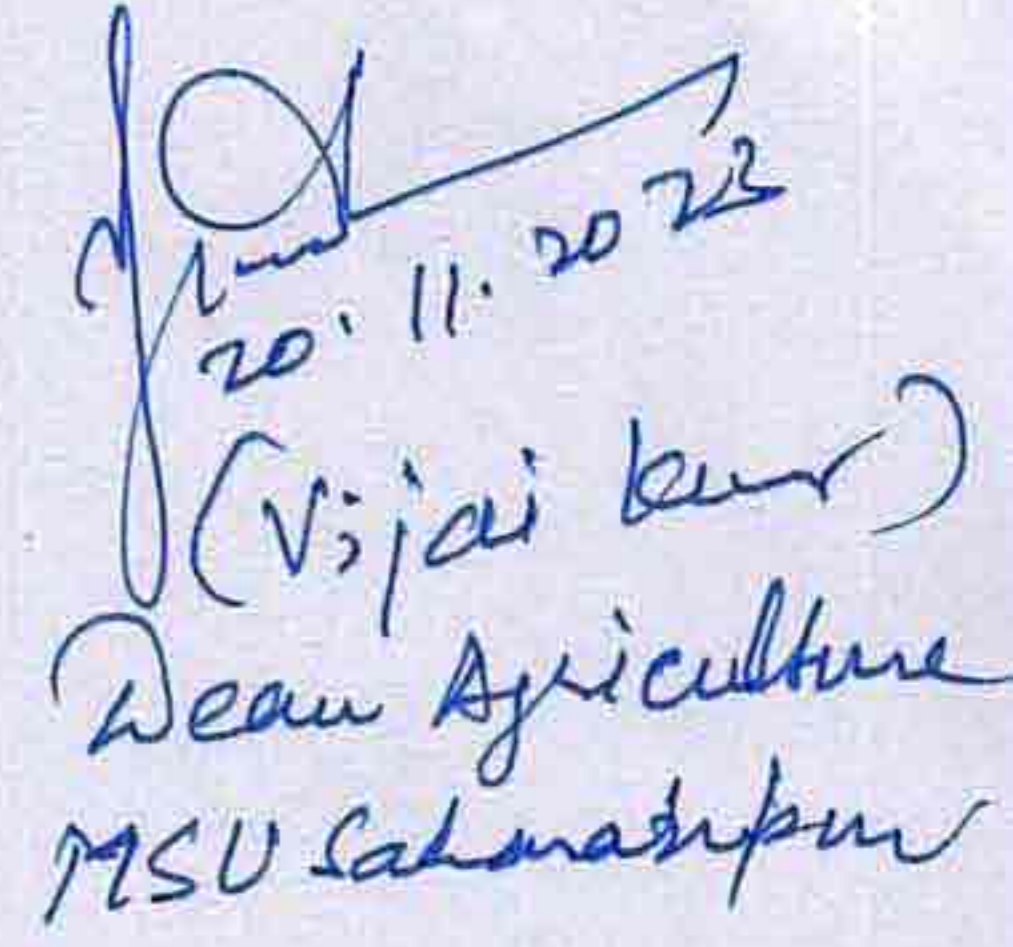 20.11.2023
(Vijai Kumar)
Dean Agriculture
MSU Saharanpur